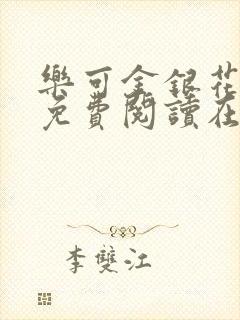 樂可金銀花
免費閱讀在
李雙江